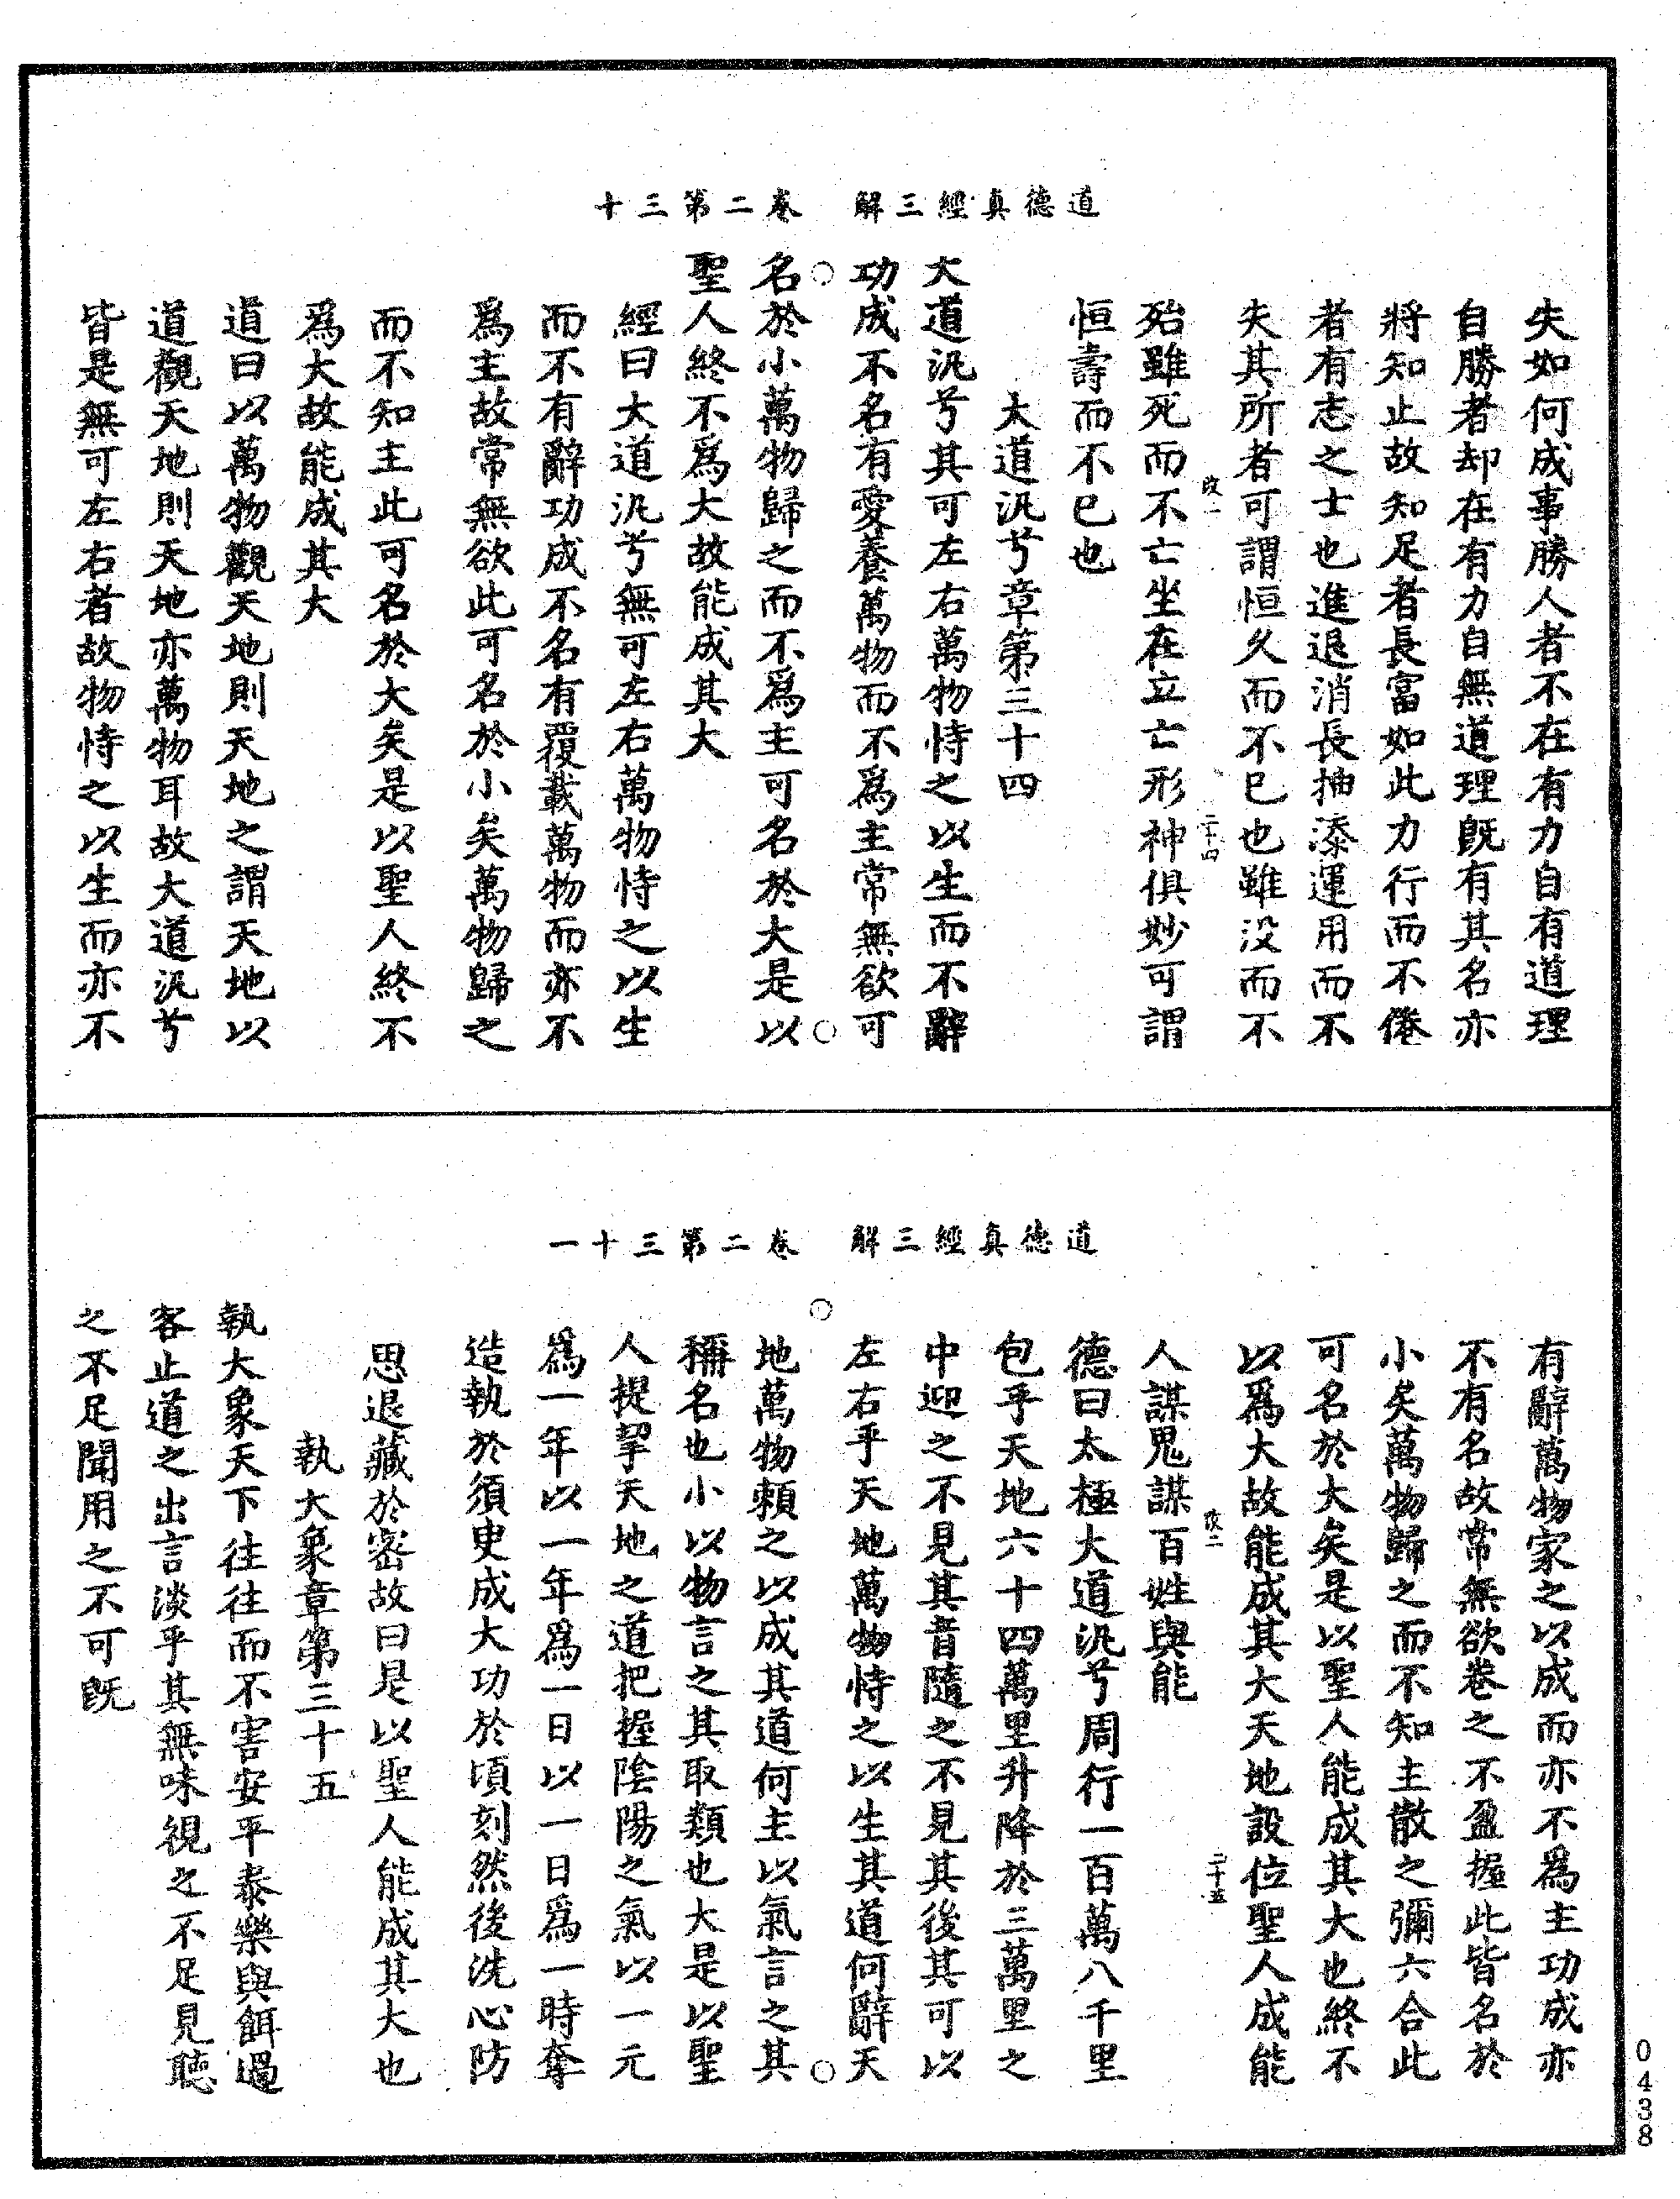 道德真經三解　卷二第三十
失如何成事勝人者不在有力自有道理
自勝者却在有力自無道理旣有其名亦
將知止故知足者長富如此力行而不倦
者有志之士也進退消長抽添運用而不
失其所者可謂恒久而不已也雖没而不
改一　二十四
殆雖死而不亡坐在立亡形神俱妙可謂
恒壽而不已也
大道汎兮章第三十四
大道汎兮其可左右萬物恃之以生而不辭
功成不名有愛養萬物而不爲主常無欲可
名於小萬物歸之而不爲主可名於大是以
聖人終不爲大故能成其大
經曰大道汎兮無可左右萬物恃之以生
而不有辭功成不名有覆載萬物而亦不
爲主故常無欲此可名於小矣萬物歸之
而不知主此可名於大矣是以聖人終不
爲大故能成其大
道曰以萬物觀天地則天地之謂天地以
道觀天地則天地亦萬物耳故大道汎兮
皆是無可左右者故物恃之以生而亦不
道德真經三解　卷二第三十一
有辭萬物家之以成而亦不爲主功成亦
不有名故常無欲卷之不盈握此皆名於
小矣萬物歸之而不知主散之彌六合此
可名於大矣是以聖人能成其大也終不
以爲大故能成其大天地設位聖人成能
改二　二十五
人謀鬼謀百姓與能
德曰太極大道汎兮周行一百萬八千里
包乎天地六十四萬里升降於三萬里之
中迎之不見其首隨之不見其後其可以
左右乎天地萬物恃之以生其道何辭天
地萬物賴之以成其道何主以氣言之其
稱名也小以物言之其取類也大是以聖
人提挈天地之道把握陰陽之氣以一元
爲一年以一年爲一日以一日爲一時奪
造執於須臾成大功於頃刻然後洗心防
思退藏於密故曰是以聖人能成其大也
執大象章第三十五
執大象天下往往而不害安平泰樂與餌過
客止道之出言淡乎其無味視之不足見聽
之不足聞用之不可旣
0438